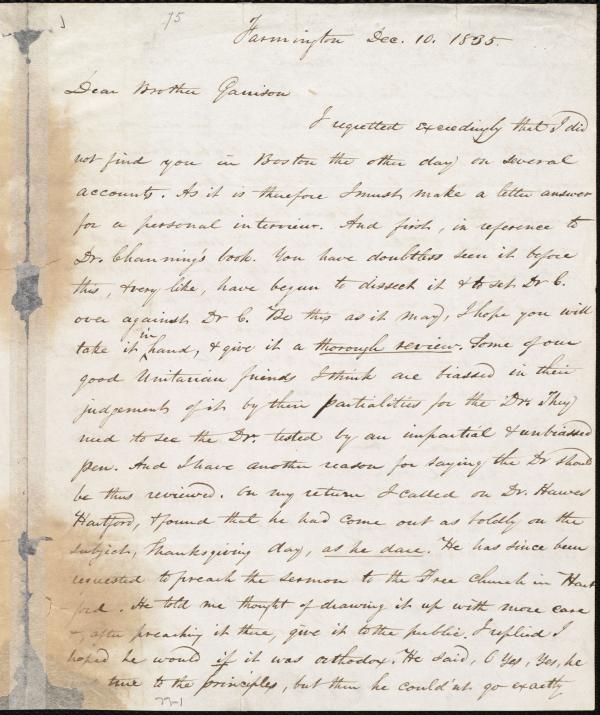 75
Farmington Dec. 10. 1835.
Dear Brother Garrison
I regretted exceedingly that I did
not find you in Boston the other day on several
accounts. As it is therefore I must make a letter answer
for a personal interview. And first, in reference to
Dr. Channing's book. You have doubtless seen it before
this, & very like, have begun to dissect it & to set Dr C.
over against Dr C. Be this as it may, I hope you will
take it in hand, & give it a thorough review. Some of our
good Unitarian friends I think are biassed in their
judgement of it by their partialities for the Dr. They
need to see the Dr. tested by an impartial & unbiassed
pen. And I have another reason for saying the Dr should
be thus reviewed. On my return I called on Dr. Hawes
Hartford, & found that he had come out as boldly on the
subject, Thanksgiving day, as he dare. He has since been
requested to preach the sermon to the Free Church in Hart
ford. He told me thought of drawing it up with more care
&, after preaching it there, give it to the public, I replied I
hoped he would if it was orthodox. He said, O Yes, Yes, he
true to the principles, but then he could'nt go exactly